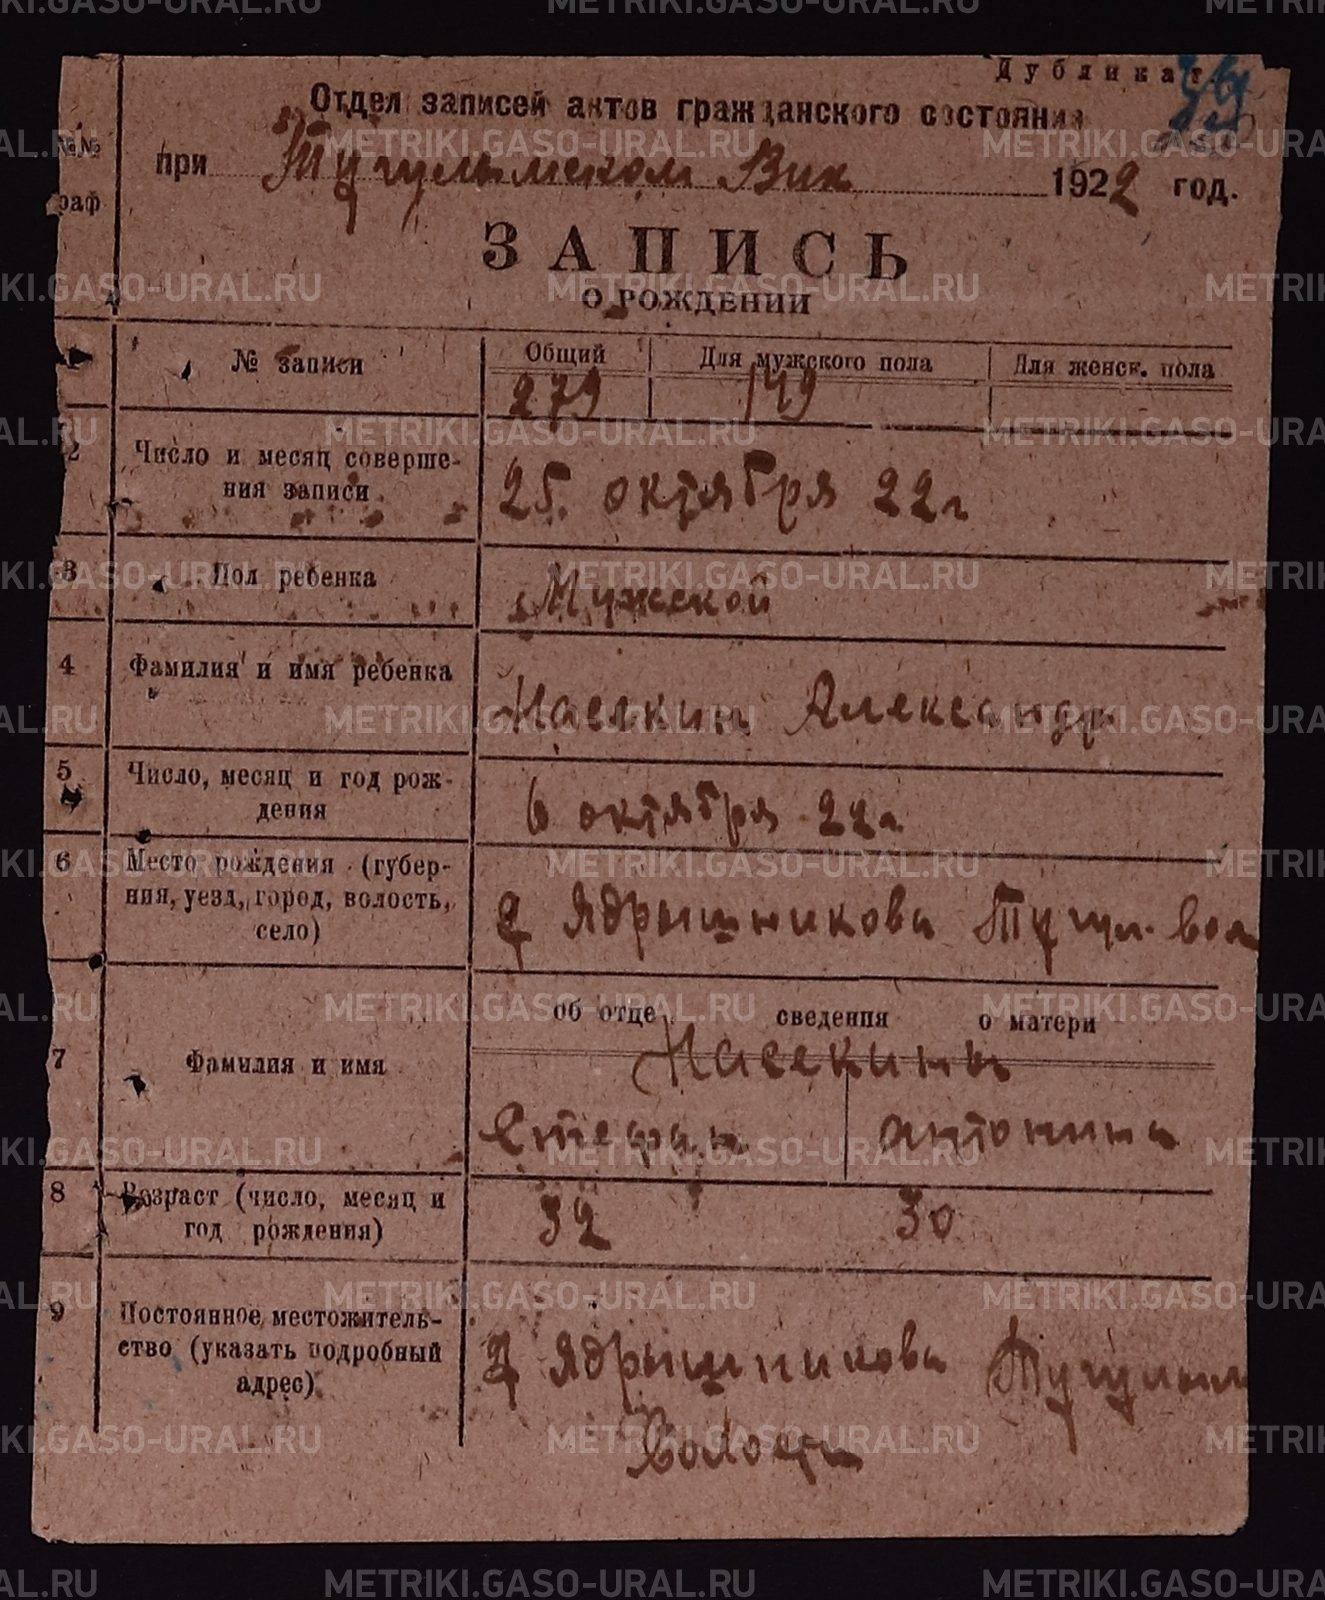 Дубликат
Отдел записей актов гражданского состояния
№№
граф
при Тугулымском Вик 1922 год.
ЗАПИСЬ
О РОЖДЕНИИ
1 № записи Общий Для мужского пола Для женск. пола
279 149
2 Число и месяц соверше-
ния записи 25. октября 22 г
3 Пол ребенка Мужской
4 Фамилия и имя ребенка Наелкин Александр
5 Число, месяц и год рож-
дения 6 октября 22 г
6 Место рождения (губер-
ния, уезд, город, волость,
село) д Ядрышникова Тугул. вол
об отце сведения о матери
7 Фамилия и имя Наелкины
Стефан Антонина
8 Возраст (число, месяц и
год рождения) 32 30
9 Постоянное местожитель-
ство (указать подробный
адрес) д Ядрышникова Тугулым
Волости
METRIKI.GASO-URAL.RU